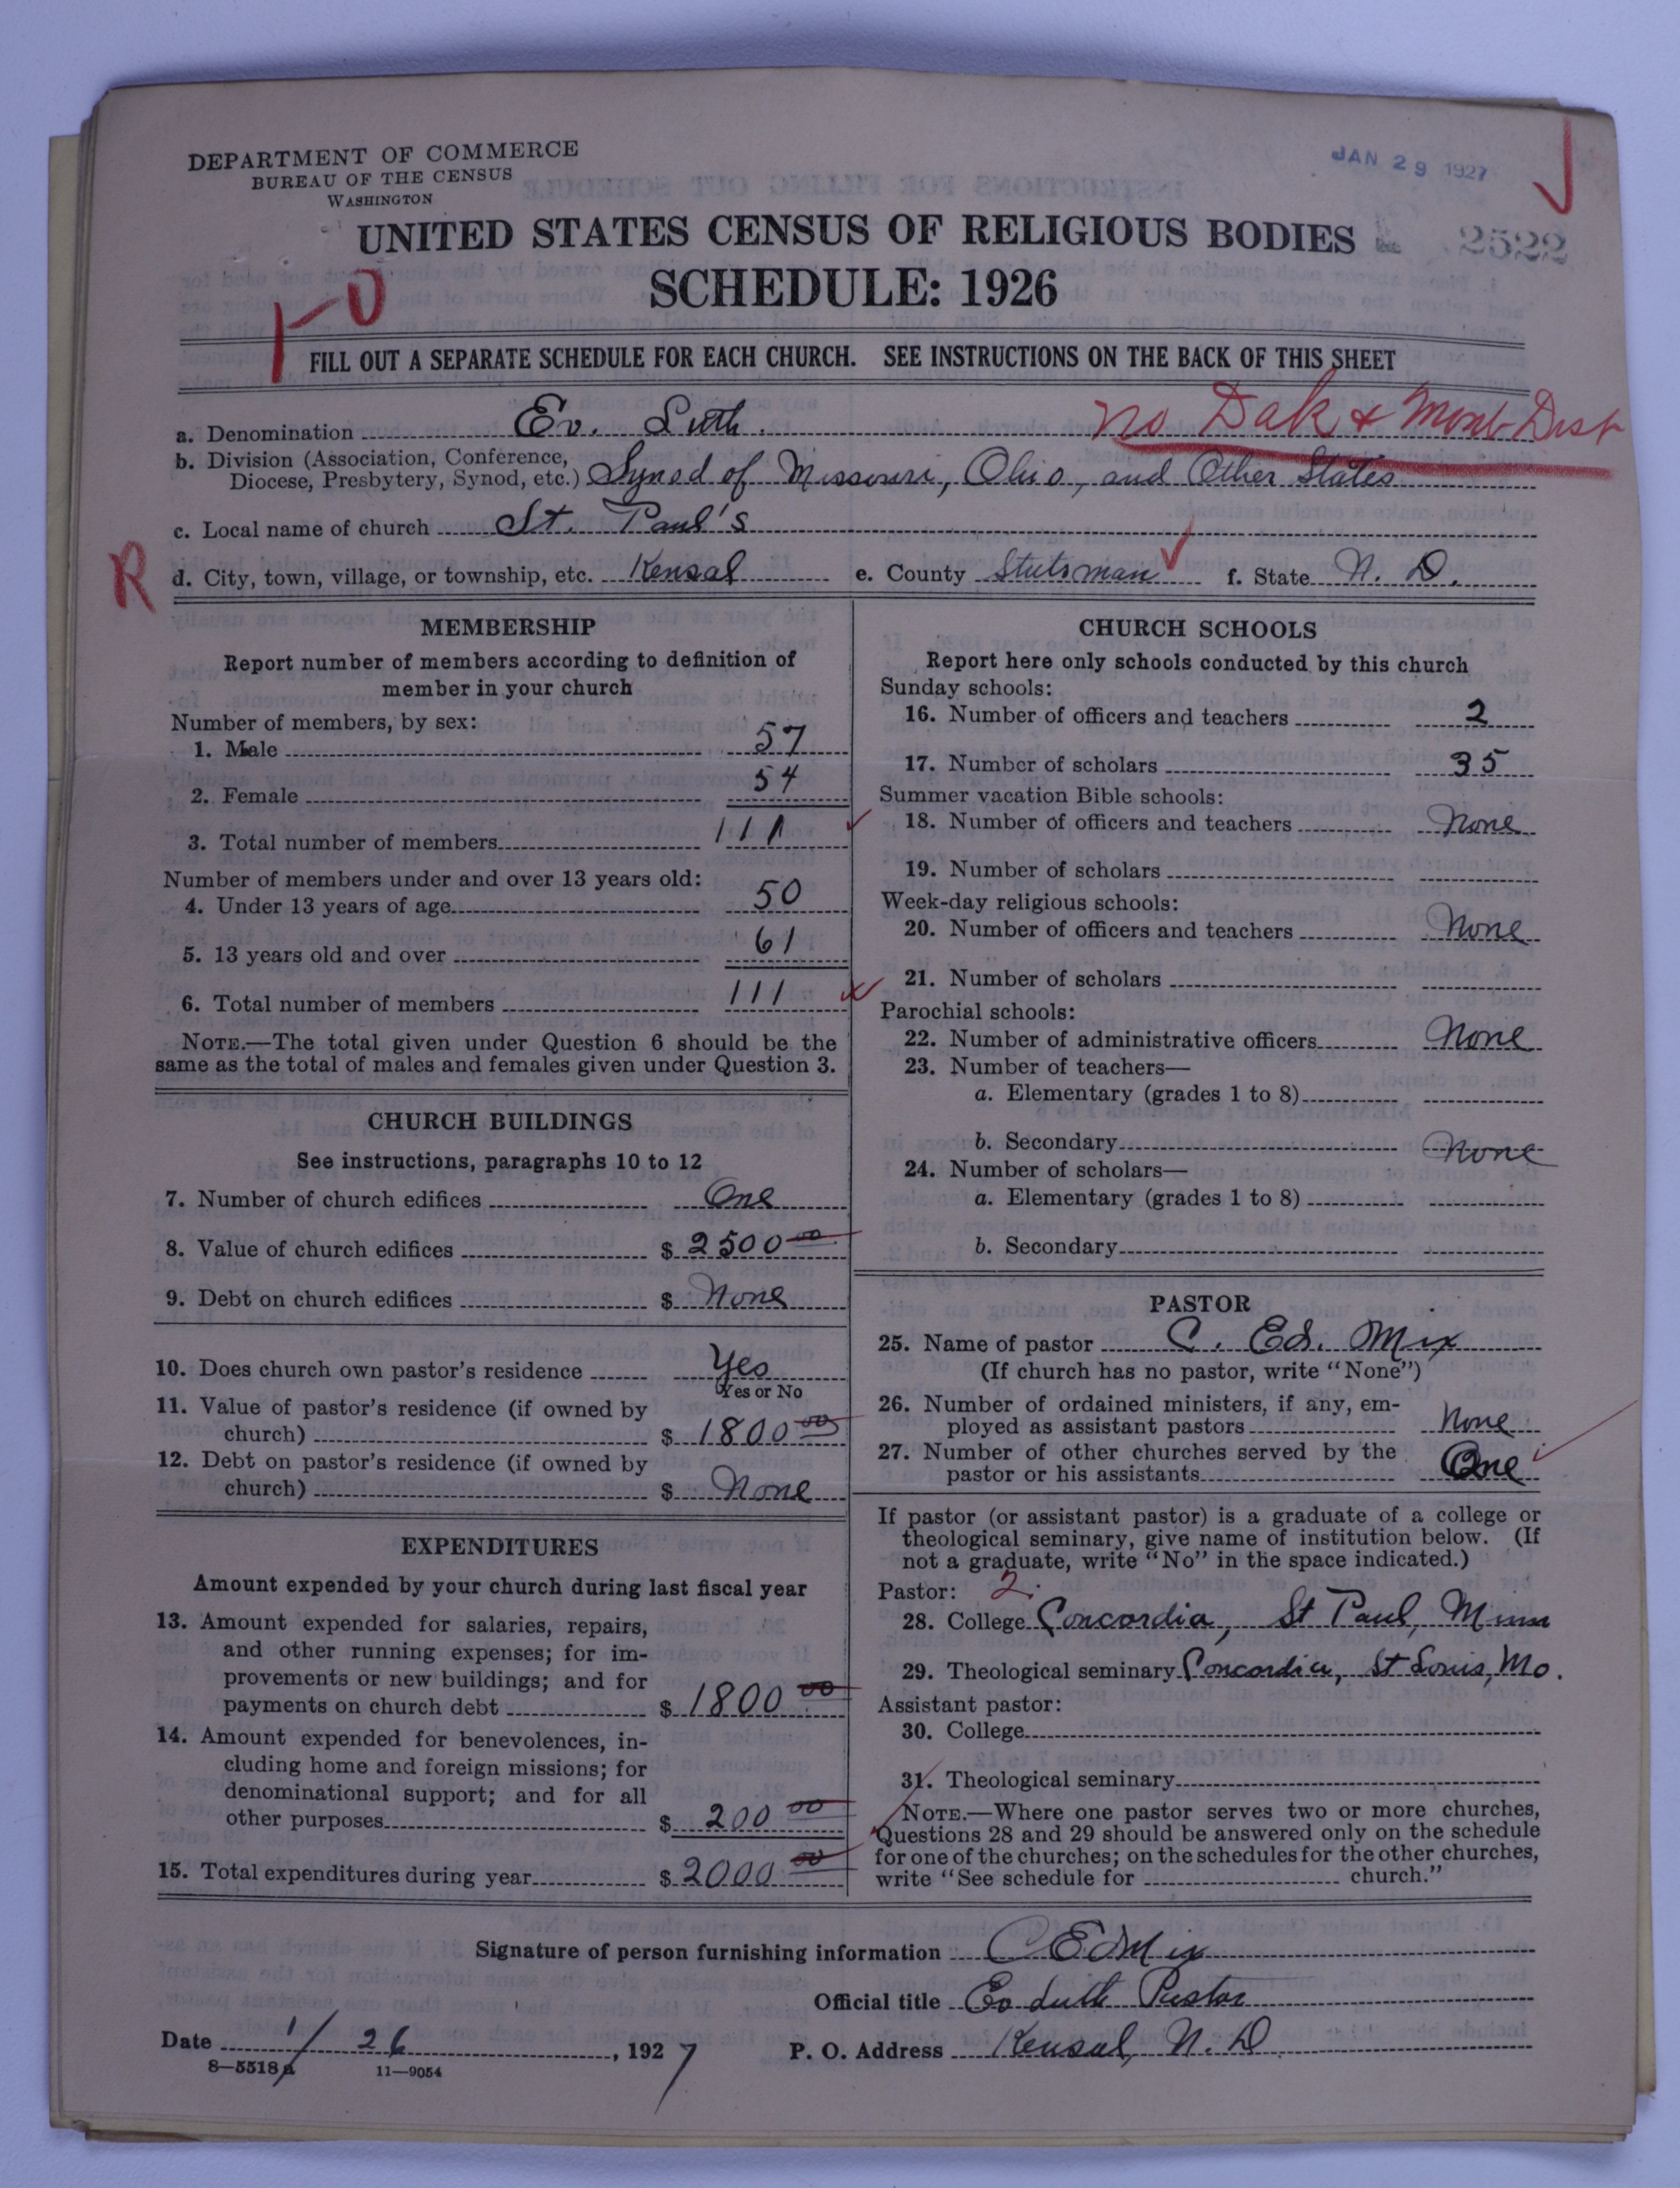 DEPARTMENT OF COMMERCE
BUREAU OF THE CENSUS
WASHINGTON
JAN 29 1927
UNITED STATES CENSUS OF RELIGIOUS BODIES
2522
SCHEDULE: 1926
1-0
FILL OUT A SEPARATE SCHEDULE FOR EACH CHURCH. SEE INSTRUCTIONS ON THE BACK OF THIS SHEET
No Dak & Mont Dist
a. Denomination Ev. Luth.
b. Division (Association, Conference,
Diocese, Presbytery, Synod, etc.) Synod of Missouri, Ohio, and Other States
c. Local name of church St. Paul's
R
d. City, town, village, or township, etc. Kensal e. County Stutsman f. State N. D.
MEMBERSHIP
Report number of members according to definition of
member in your church
Number of members, by sex:
1. Male 57
2. Female 54
3. Total number of members 111
Number of members under and over 13 years old:
4. Under 13 years of age 50
5. 13 years old and over 61
6. Total number of members 111
NOTE.—The total given under Question 6 should be the
same as the total of males and females given under Question 3.
CHURCH BUILDINGS
See instructions, paragraphs 10 to 12
7. Number of church edifices One
8. Value of church edifices $ 2500 00
9. Debt on church edifices $ None
10. Does church own pastor's residence Yes
Yes or No
11. Value of pastor's residence (if owned by
church) $ 1800 00
12. Debt on pastor's residence (if owned by
church) $ None
EXPENDITURES
Amount expended by your church during last fiscal year
13. Amount expended for salaries, repairs,
and other running expenses; for im-
provements or new buildings; and for
payments on church debt $ 1800 00
14. Amount expended for benevolences, in-
cluding home and foreign missions; for
denominational support; and for all
other purposes $ 200 00
15. Total expenditures during year $ 2000 00
CHURCH SCHOOLS
Report here only schools conducted by this church
Sunday schools:
16. Number of officers and teachers 2
17. Number of scholars 35
Summer vacation Bible schools:
18. Number of officers and teachers None
19. Number of scholars
Week-day religious schools:
20. Number of officers and teachers None
21. Number of scholars
Parochial schools:
22. Number of administrative officers None
23. Number of teachers—
a. Elementary (grades 1 to 8)
b. Secondary None
24. Number of scholars—
a. Elementary (grades 1 to 8)
b. Secondary
PASTOR
25. Name of pastor C. Ed. Mix
(If church has no pastor, write "None")
26. Number of ordained ministers, if any, em-
ployed as assistant pastors None
27. Number of other churches served by the
pastor or his assistants One
If pastor (or assistant pastor) is a graduate of a college or
theological seminary, give name of institution below. (If
not a graduate, write "No" in the space indicated.)
Pastor: 2.
28. College Concordia, St Paul, Minn
29. Theological seminary Concordia, St Louis, Mo.
Assistant pastor:
30. College
31. Theological seminary
NOTE.—Where one pastor serves two or more churches,
Questions 28 and 29 should be answered only on the schedule
for one of the churches; on the schedules for the other churches,
write "See schedule for church."
Signature of person furnishing information C Ed Mix
Official title Ev Luth Pastor
Date 1/26, 1927 P. O. Address Kensal, N. D.
8—5518a 11—9054